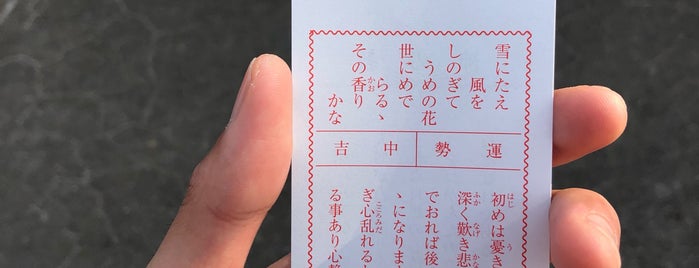 雪にたえ
風を
しのぎて
うめの花
世にめで
らるゝ
その香り
かな
運勢
中吉
初めは憂き
深く歎き悲
でおれば後
ゝになりま
ぎ心乱れる
る事あり心